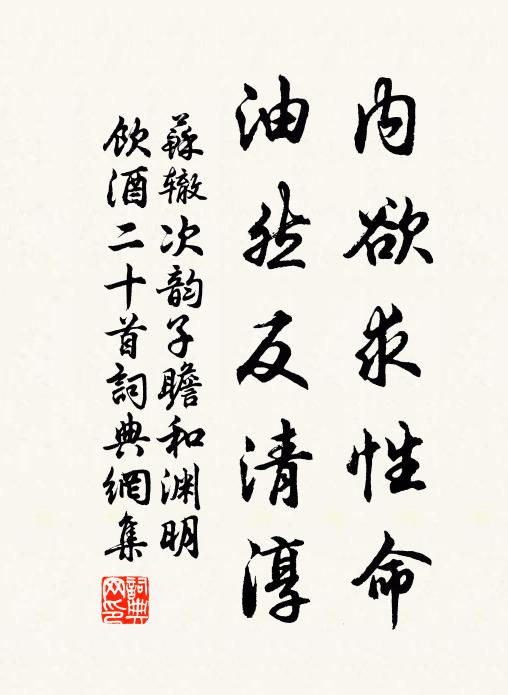 内欲求性命
油然反清淳
蘇辙次韵子瞻和渊明
飲酒二十首詞典網集
詞典
网印